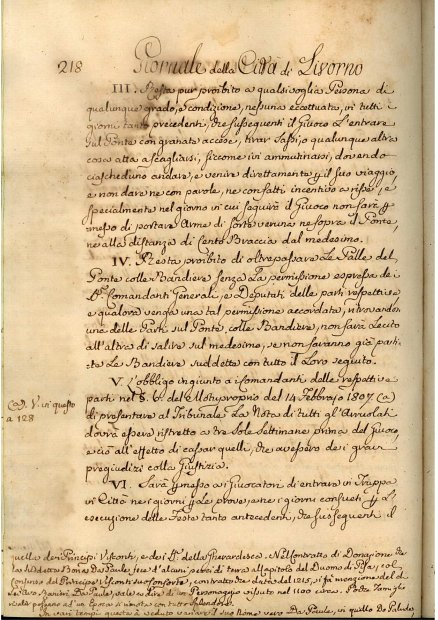 218 Giornale della Città di Livorno
III. Resta pur proibito a qualsivoglia Persona di
qualunque grado, e condizione, nessuna eccettuata, in tutti i
giorni tanto precedenti, che susseguenti il Giuoco L'entrare
sul Ponte con granate accese, tirar Sassi, o qualunque altra
cosa atta a scagliarsi, siccome ivi ammutinarsi, dovendo
ciascheduno andare, e venire direttamente p il suo viaggio,
e non dare ne con parole, ne con fatti incentivo a risse, e
specialmente nel giorno in cui seguirà il Giuoco non sarà p
messo di portare Arme di sorte veruna ne sopra il Ponte,
ne alla distanza di Cento Braccia dal medesimo.
IV. Resta proibito di oltrepassare Le Palle del
Ponte colle Bandiere senza La permissione espressa dei
Comandanti Generali, e Deputati delle parti respettive
e qualora venga una tal permissione accordata, ritrovandosi
una delle Parti sul Ponte colle Bandiere, non sarà Lecito
all'altra di salire sul medesimo, se non saranno già par
tite Le Bandiere suddette con tutto il Loro seguito.
V. L'obbligo ingiunto a Comandanti delle respettive
parti nel §. 6. del Motuproprio del 14 Febbrajo 1807. (a)
Cod. V. in questo
a 128
di presentare al Tribunale La Nota di tutti gl'Arruolati
dovrà essere ristretto a tre sole Settimane prima del Giuoco,
e ciò all'effetto di cassar quelli, che avessero dei gravi
pregiudizi colla Giustizia.
VI. Sarà pmesso a i Giuocatori di entrare in Truppa
in Città ne i giorni p le prove, a ne i giorni consueti p L'
esecuzione delle Feste tanto antecedenti, che susseguenti il
quella dei Principi Visconti, e dei della Gherardesca. Nell'Contratto di Donazione de
la Suddetta Bona Da Paule, fece d'alcuni pezzi di terra al Capitolo del Duomo di Pisa, col
consenso del Principe Visconti suo Consorte, contratto che data del 1215, si fà menzione del d.
Ranieri Da Paule, vale a dire di un Personaggio vissuto nel 1100 circa.